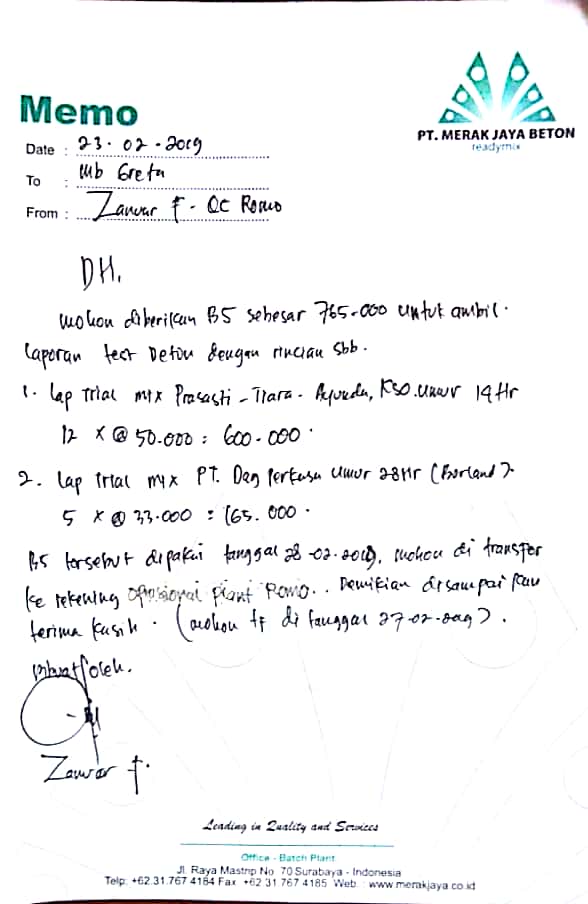 Memo
PT. MERAK JAYA BETON
readymix
Date : 23.02.2019
To : Mb Greta
From : Zanuar F - QC Romo
DH.
Mohon diberikan BS sebesar 765.000 untuk ambil
laporan test beton dengan rincian sbb.
1. Lap Trial mix Prasasti - Tiara - Ayunda, KSO. Umur 14 Hr
12 x @ 50.000 = 600.000
2. Lap trial mix PT. Perkasa umur 28 Hr
5 x @ 33.000 = 165.000
BS tersebut dipakai tanggal 28-02-2019, mohon di transfer
ke rekening plant Romo. Demikian disampaikan
terima kasih. (mohon tf di tanggal 27-02-2019).
Dibuat oleh.
Zanuar F.
Leading in Quality and Services
Office - Batch Plant
Jl. Raya Mastrip No. 70 Surabaya - Indonesia
Telp: +62.31.767 4184 Fax +62 31 767 4185 Web. : www.merakjaya.co.id